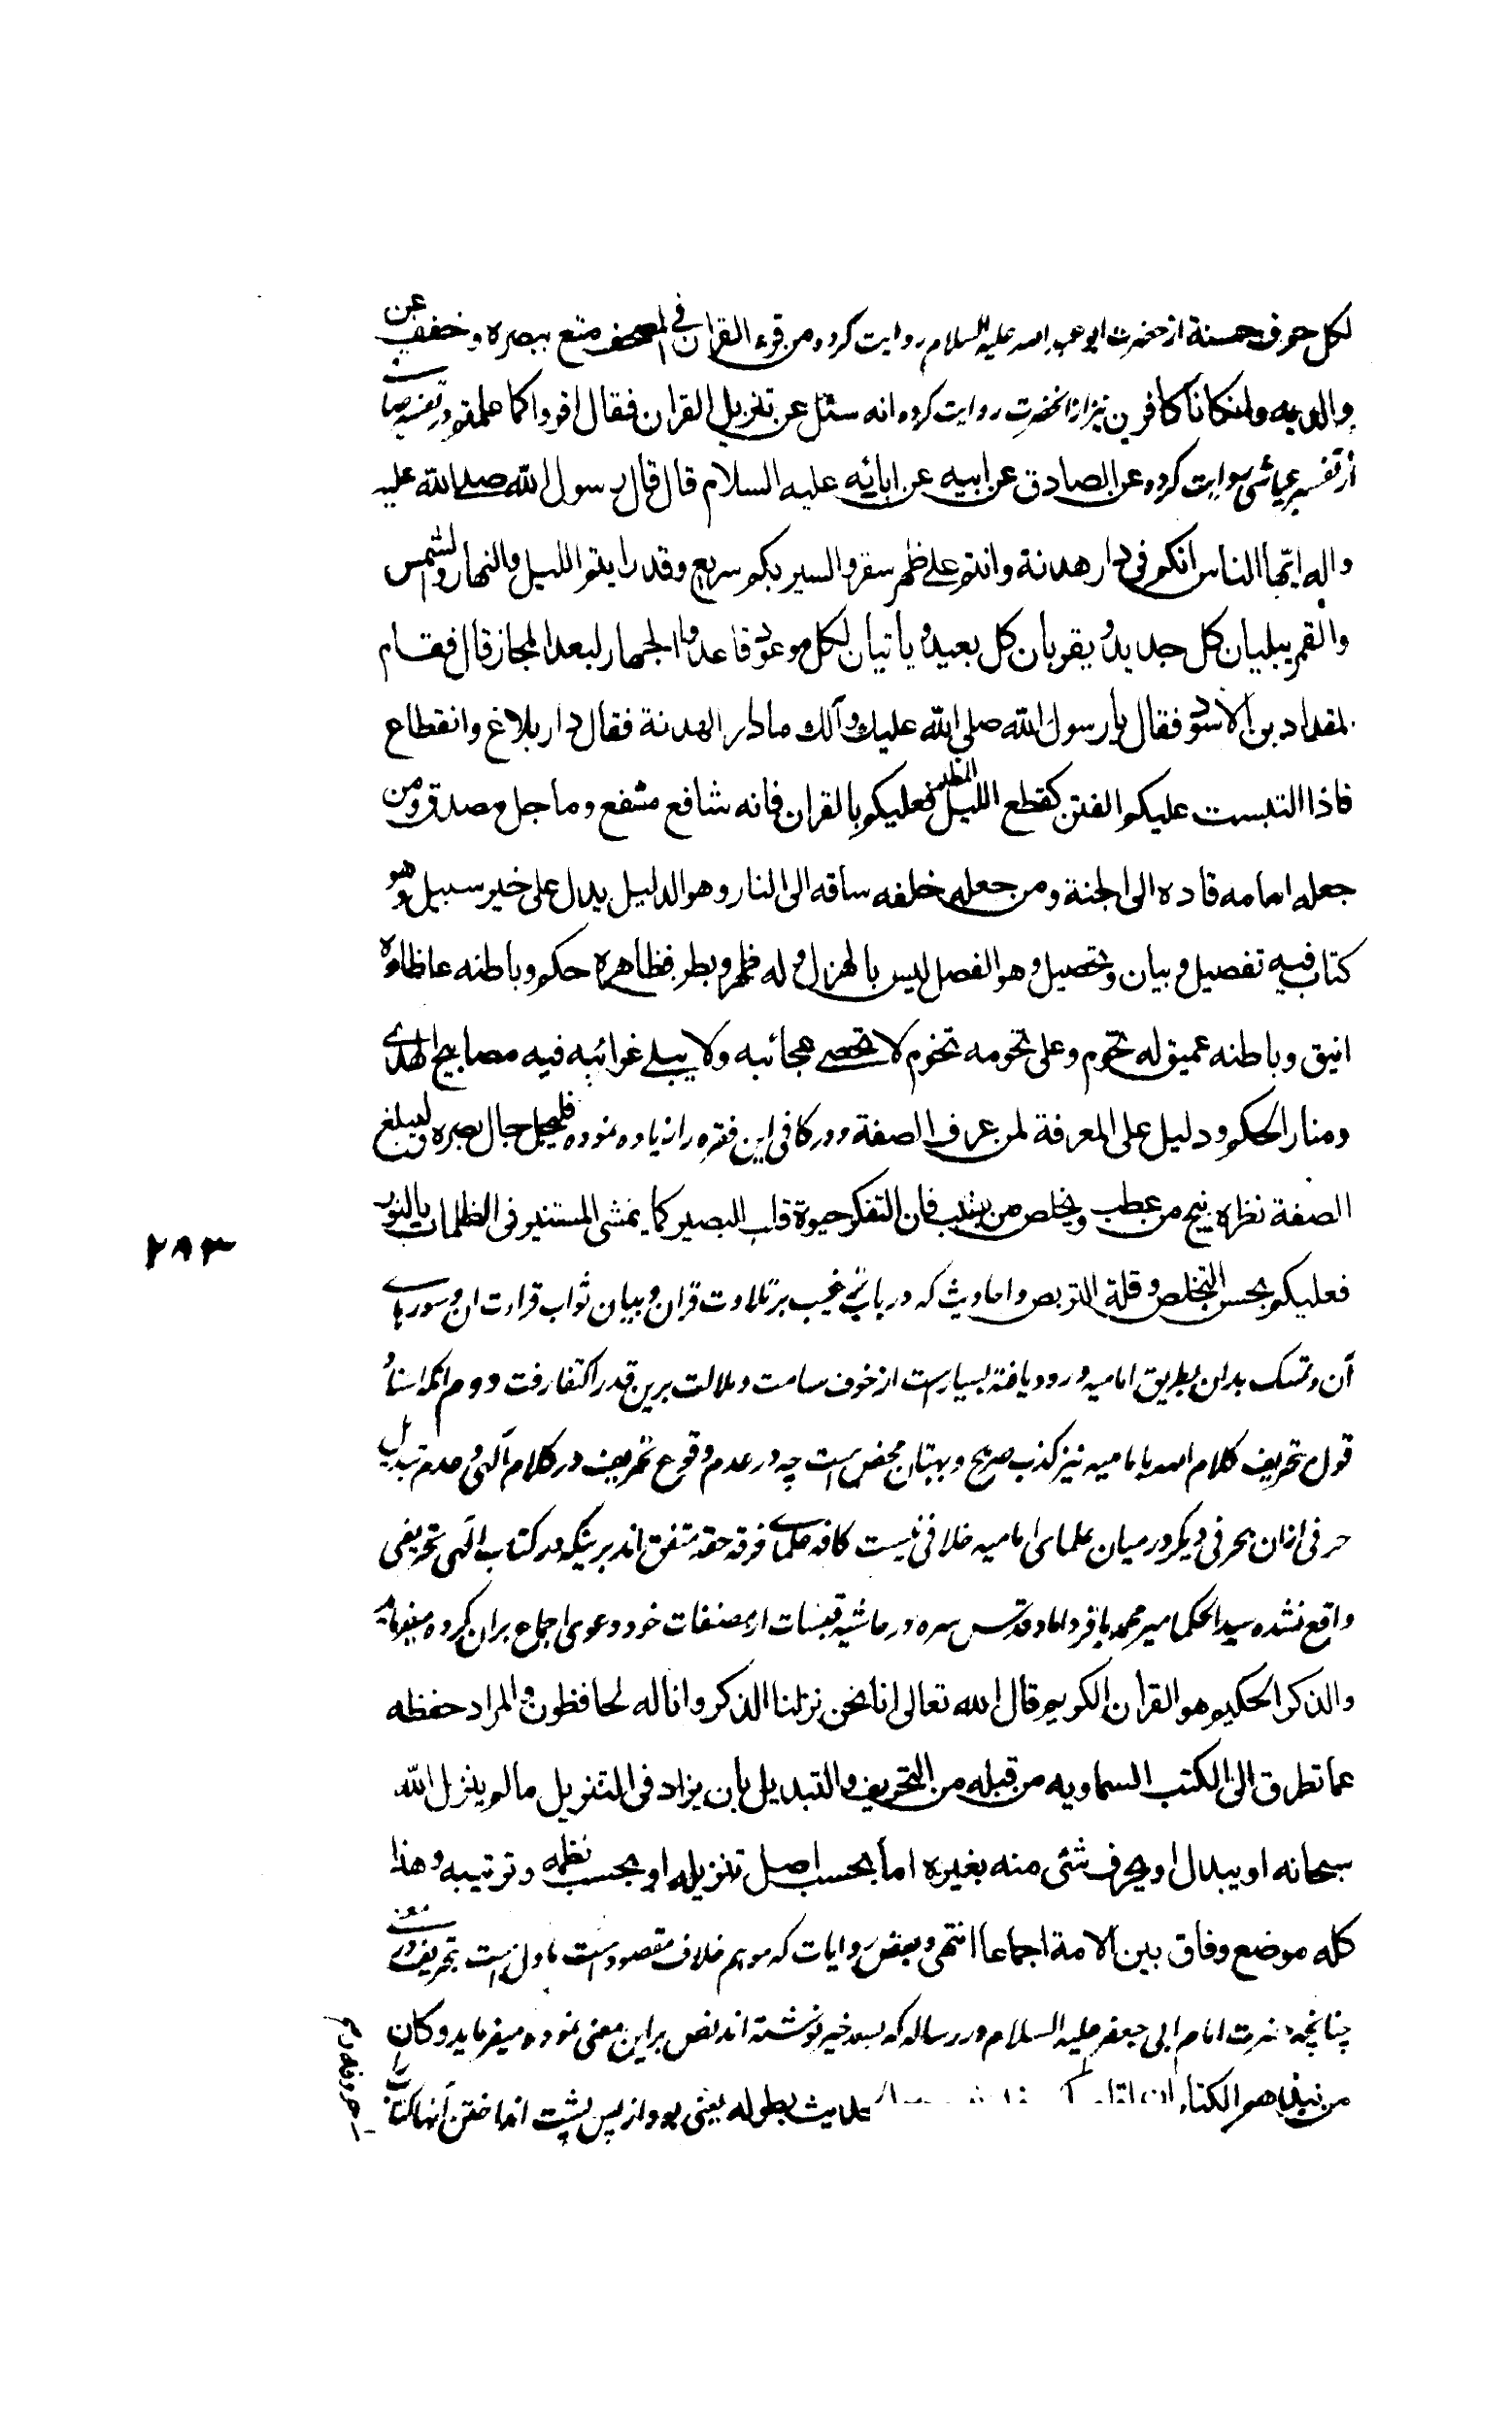 لكل حرف حسنة از حضرت ابو عبد الله عليه السلام روايت كرده من قرء القران فى المصحف متع ببصره وخفف عن
والديه وان كانا كافرين نيز از انحضرت روايت كرده انه سئل عن تنزيل القران فقال اقروا كما علمتم در تفسير صافى
از تفسير عياشى روايت كرده عن الصادق عن ابيه عن ابائه عليه السلام قال قال رسول الله صلى الله عليه
واله ايّها الناس انكم فى دار هدنة وانتم على ظهر سفر والسير بكم سريع وقد رايتم الليل والنهار والشمس
والقمر يبليان كل جديد ويقربان كل بعيد وياتيان لكل موعود فاعدوا الجهاز لبعد المجاز قال فقام
المقداد بن الاسود فقال يا رسول الله صلى الله عليك وآلك ما دار الهدنة فقال دار بلاغ وانقطاع
فاذا التبست عليكم الفتن كقطع الليل المظلم فعليكم بالقران فانه شافع مشفع وماحل مصدق ومن
جعله امامه قاده الى الجنة ومن جعله خلفه ساقه الى النار وهو الدليل يدل على خير سبيل وهو
كتاب فيه تفصيل وبيان وتحصيل وهو الفصل ليس بالهزل وله ظهر وبطن فظاهره حكم وباطنه علم ظاهره
انيق وباطنه عميق له تخوم وعلى تخومه تخوم لا تحصى عجائبه ولا يبلى غرائبه فيه مصابيح الهدى
ومنار الحكم ودليل على المعرفة لمن عرف الصفة ودر كافى اين فقره را زياده نموده فليجل جال بصره وليبلغ
الصفة نظره ينج من عطب ويخلص من نشب فان التفكر حيوة قلب البصير كما يمشى المستنير فى الظلمات بالنور
فعليكم بحسن التخلص وقلة التربص واحاديث كه در باب ترغيب بر تلاوت قران وبيان ثواب قراءت ان وسورهاى
آن وتمسك بدان بطريق اماميه ورود يافته بسيار است از خوف سامت وملالت برين قدر اكتفا رفت دوم انكه اسناد
قول بتحريف كلام الله باماميه نيز كذب صريح وبهتان محض است چه در عدم وقوع تحريف در كلام آلهى وعدم تبديل
حرفى ازان بحرفى ديگر در ميان علماى اماميه خلافى نيست كافه علماى فرقه حقه متفق اند برينكه در كتاب الهى تحريفى
واقع نشده سيد الحكما مير محمد باقر داماد قدس سره در حاشيه قبسات از مصنفات خود دعوى اجماع بران كرده ميفرمايد
والذكر الحكيم هو القران الكريم قال الله تعالى انا نحن نزلنا الذكر وانا له لحافظون والمراد حفظه
عما تطرق الى الكتب السماويه من قبله من التحريف والتبديل بان يزاد فى التنزيل ما لم ينزل الله
سبحانه او يبدل او يحرف شئى منه بغيره اما بحسب اصل تنزيله او بحسب نظمه وترتيبه وهذا
كله موضع وفاق بين الامة اجماعا انتهى وبعض روايات كه موهم خلاف مقصود است ماول است بتحريف در معنى
چنانچه حضرت امام ابى جعفر عليه السلام در رساله كه بسعد خير نوشته اند نص براين معنى نموده ميفرمايد وكان
من نبذهم الكتاب ان اقاموا حروفه الحديث بطوله يعنى بود از پس پشت انداختن آنها كتاب را
٢٨٣